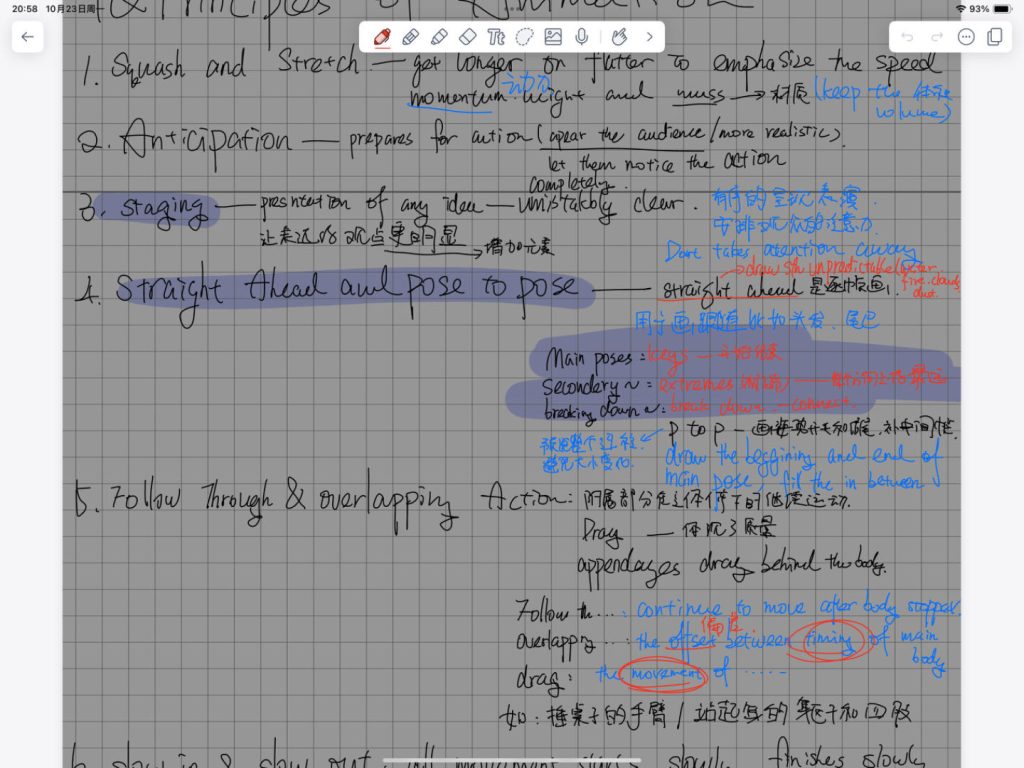 20:58 10月23日周
93%
& Principles of Animation
1. Squash and Stretch — get longer or flatter to emphasize the speed
动力
momentum. weight and mass → 材质 (keep the 体积 volume)
2. Anticipation — prepares for action (apear the audience / more realistic).
let them notice the action
completely.
3. Staging — presntation of any idea — unmistakbly clear.
有序的呈现表演
安排观众的注意力.
让表达的观点更明显 → 增加元素
Dont takes atention away
draw sth unpredictake (water fire clouds dust.
4. Straight Ahead and pose to pose — straight ahead 是逐帧画.
用于画跟随 比如头发、尾巴
Main poses: keys —
Secondery ~: extremes
breaking down ~: break down — connect.
p to p — 补中间帧.
避免大小变化.
draw the beggining and end of
main pose, fil the in between
5. Follow Through & overlapping Action: 附属部分在主体停下时继续运动.
Drag — 体现了质量
appendages drag behind the body.
Follow th.... : continue to move after body stopped.
偏差
overlapping ... : the offset between timing of main body
drag: the movement of ......
如: 捶桌子的手臂 / 站起身的
6. slow in & slow out: all movement starts slowly, finishes slowly